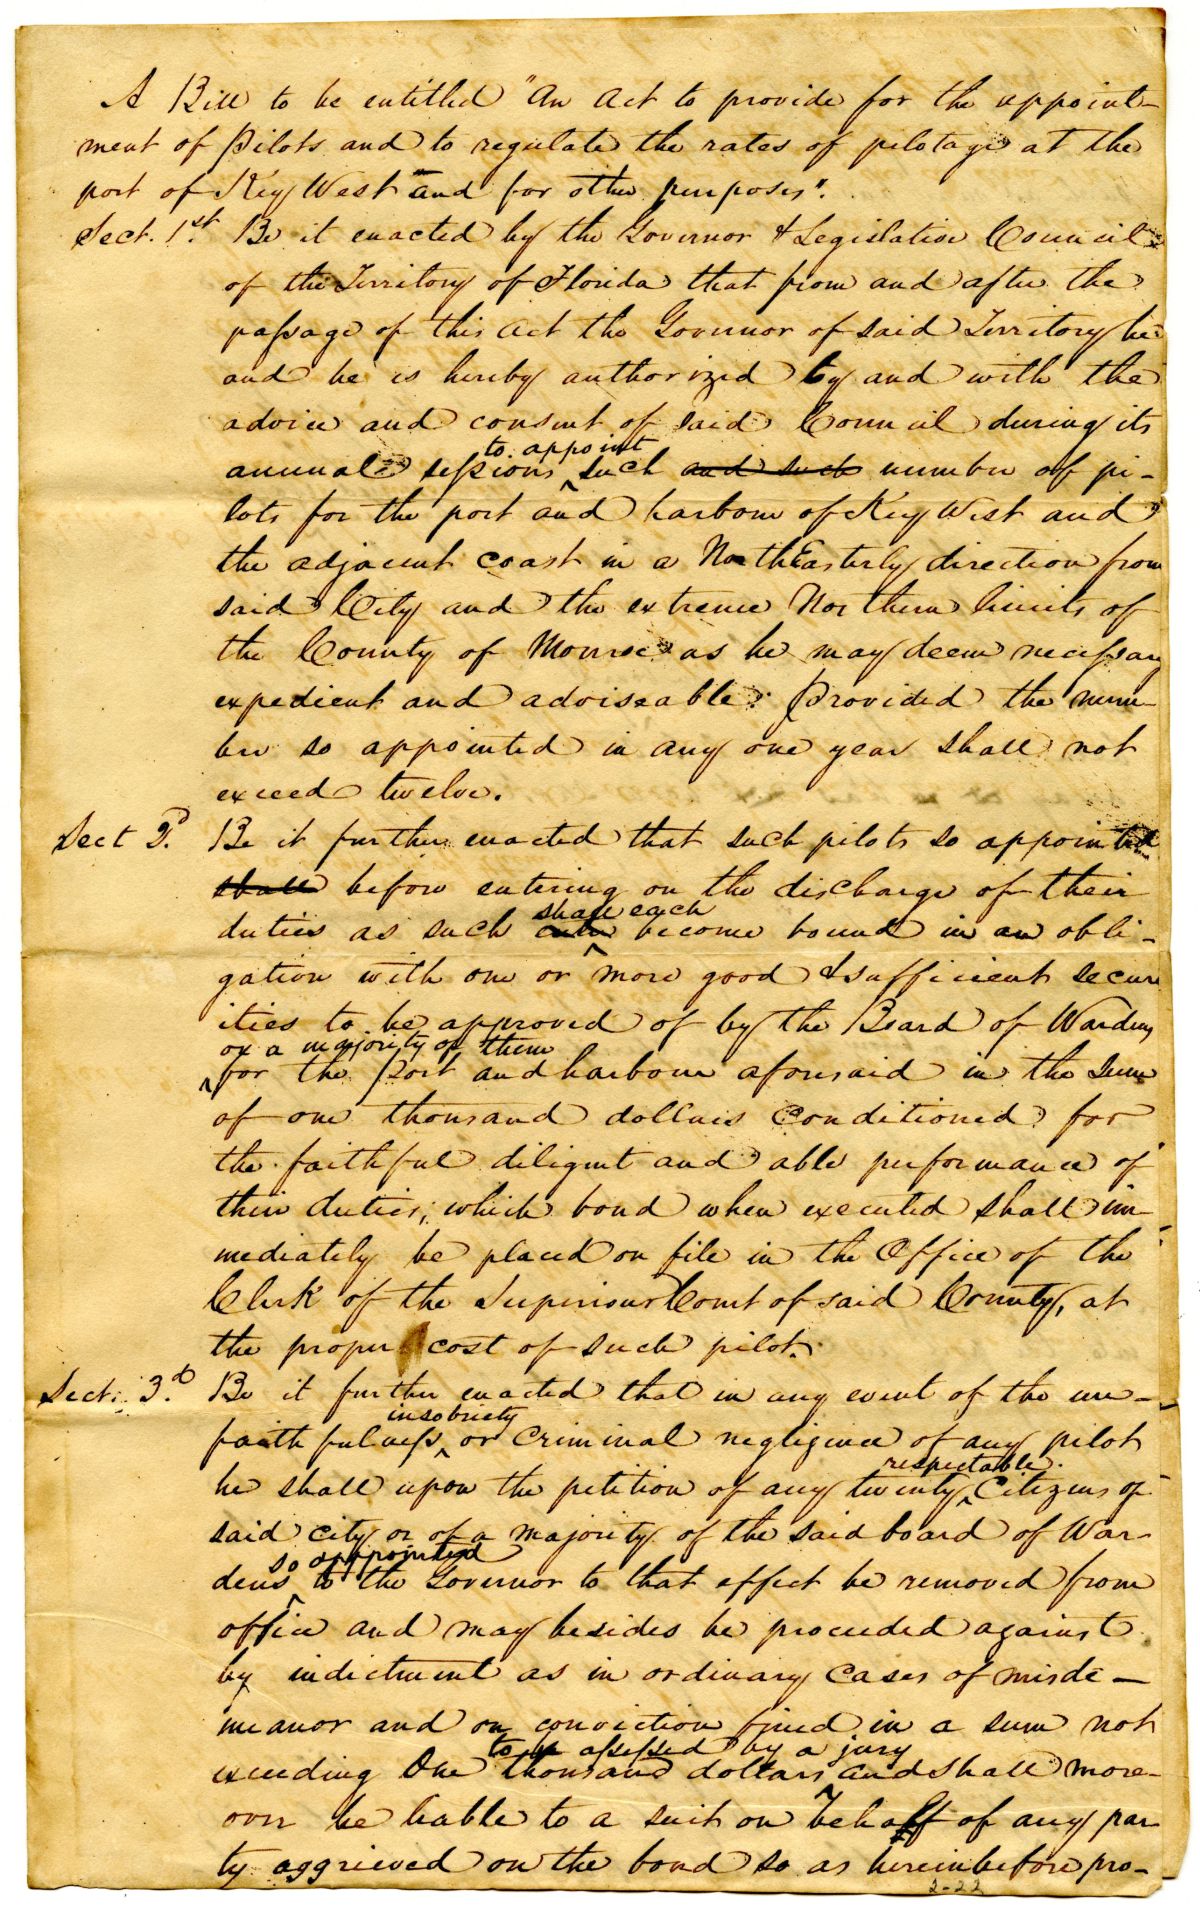 A Bill to be entitled "An Act to provide for the appoint-
ment of Pilots and to regulate the rates of pilotage at the
port of Key West and for other purposes".
Sect. 1st. Be it enacted by the Governor & Legislative Council
of the Territory of Florida that from and after the
passage of this Act the Governor of said Territory be
and he is hereby authorized by and with the
advice and consent of said Council during its
to appoint
annual sessions such and such number of pi-
lots for the port and harbour of Key West and
the adjacent coast in a NorthEasterly direction from
said City and the extreme Northern limits of
the County of Monroe as he may deem necessary
expedient and adviseable: Provided the num-
ber so appointed in any one year shall not
exceed twelve.
Sect 2d. Be it further enacted that such pilots so appointed
shall before entering on the discharge of their
shall each
duties as such become bound in an obli-
gation with one or more good & sufficient secur
ities to be approved of by the Board of Wardens
or a majority of them
for the Port and harbour aforesaid in the Sum
of one thousand dollars conditioned for
the faithful diligent and able performance of
their duties; which bond when executed shall im-
mediately be placed on file in the Office of the
Clerk of the Superiour Court of said County, at
the proper cost of such pilot.
Sect: 3.d Be it further enacted that in any event of the un-
insobriety
faithfulness or criminal negligence of any pilot
respectable
he shall upon the petition of any twenty Citizens of
said city or of a majority of the said board of War-
so appointed
dens to the Governor to that effect be removed from
office and may besides be proceeded against
by indictment as in ordinary cases of misde-
meanor and on conviction fined in a sum not
to be assessed by a jury
exceeding One thousand dollars and shall more-
over be liable to a suit on behalf of any par
ty aggrieved on the bond so as hereinbefore pro-
2-22